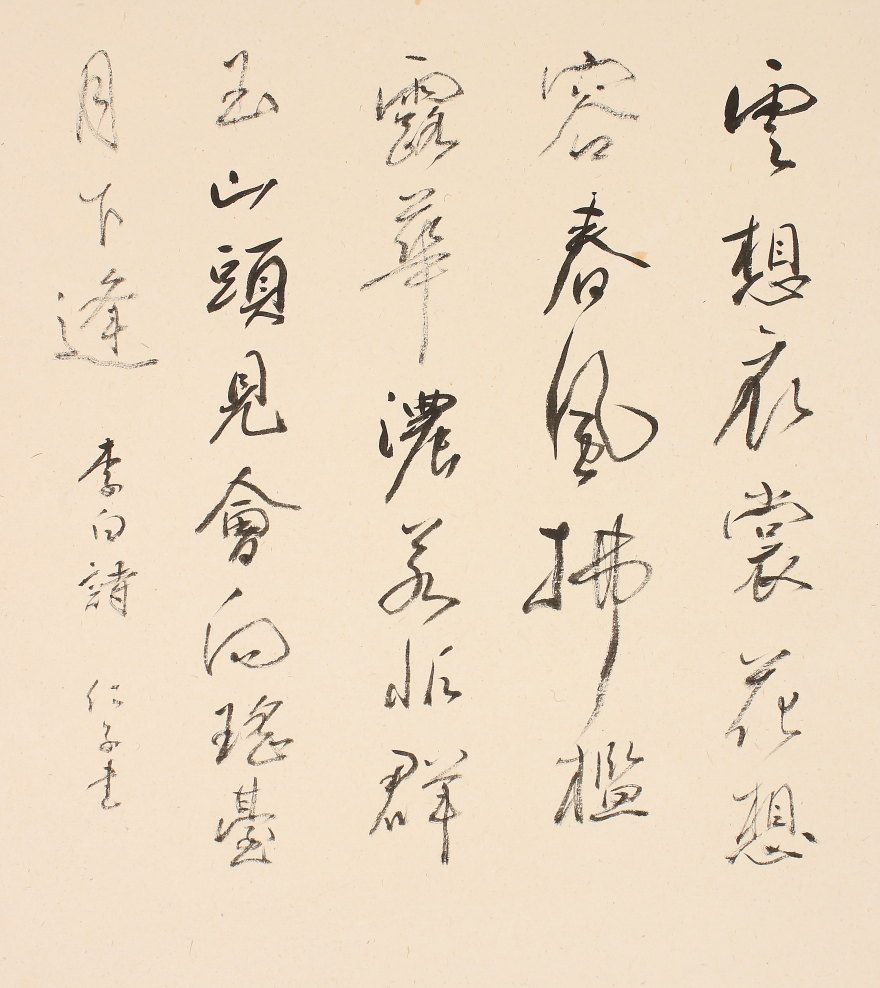 雲想衣裳花想
容春風拂檻
露華濃若非群
玉山頭見會向瑤臺
月下逢 李白詩 仁子書